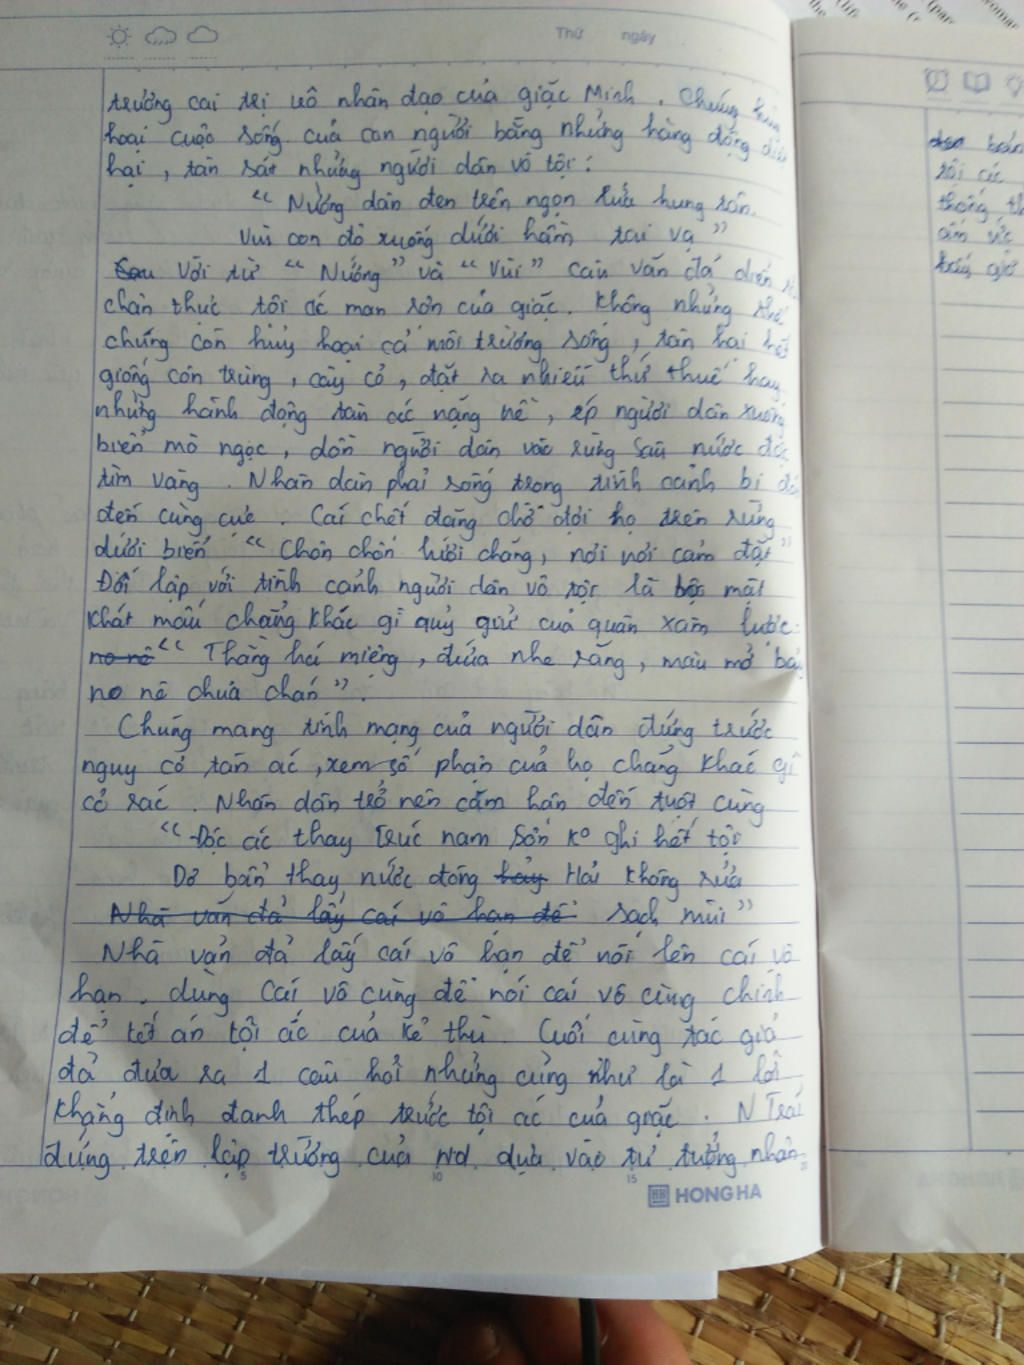 Thứ ngày
trưởng cai trị vô nhân đạo của giặc Minh. Chúng hủy
hoại cuộc sống của con người bằng những hàng động
hại, tàn sát những người dân vô tội:
"Nướng dân đen trên ngọn lửa hung tàn.
Vùi con đỏ xuống dưới hầm tai vạ"
Với từ "Nướng" và "Vùi" câu văn đã diễn
chân thực tội ác man rợn của giặc. Không những thế
chúng còn hủy hoại cả môi trường sống, tàn hại hết
giống côn trùng, cây cỏ, đặt ra nhiều thứ thuế hay
những hành động tàn ác nặng nề, ép người dân xuống
biển mò ngọc, dồn người dân vào rừng sâu nước độc
tìm vàng. Nhân dân phải sống trong tình cảnh bi
đến cùng cực. Cái chết đang chờ đợi họ trên rừng
dưới biển "Chốn chốn lưới chăng, nơi nơi cảm đặt"
Đối lập với tình cảnh người dân vô tội là mặt
khát máu chẳng khác gì quỷ giữ của quân xâm lược:
"Thằng há miệng, đứa nhe răng, máu mở bấy
no nê chưa chán".
Chúng mang tính mạng của người dân đứng trước
nguy cơ tàn ác, xem số phận của họ chẳng khác gì
cỏ rác. Nhân dân trở nên căm hận đến tuột cùng
"Độc ác thay trúc nam Sơn ko ghi hết tội
Dơ bẩn thay nước đông Hải không rửa
sạch mùi"
Nhà văn đã lấy cái vô hạn để nói lên cái vô
hạn. dùng cái vô cùng để nói cái vô cùng chính
để tết án tội ác của kẻ thù. Cuối cùng tác giả
đã đưa ra 1 câu hỏi nhưng cũng như là 1 lời
khẳng định đanh thép trước tội ác của giặc. N Trãi
đứng trên lập trường của Nd dựa vào tư tưởng nhân
5 10 15
HONG HA
bán
tôi ác
thống